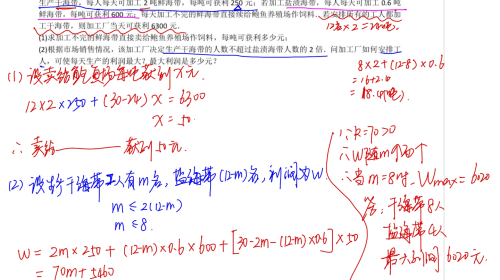 生产干海带,每人每天可加工2吨鲜海带,每吨可获利250元;若加工盐渍海带,每人每天可加工0.6吨
鲜海带,每吨可获利600元,每天剩下的鲜海带直接卖给鲍鱼养殖场作饲料,若安排所有的工人都加
工干海带,则加工厂当天可获利6300元.
12×2=24吨
(1)求加工不完的鲜海带直接卖给鲍鱼养殖场作饲料,每吨可获利多少元;
(2)根据市场销售情况,该加工厂决定生产干海带的人数不超过盐渍海带人数的2倍.问加工厂如何安排工
人,可使每天生产的利润最大?最大利润是多少元?
(1)设卖给鲍鱼场每吨获利x元.
12×2×250+(30-24)x=6300
x=50.
∴卖给 获利50元.
8×2+(12-8)×0.6
=16+2.4
=18.4(吨)
(2)设生产干海带工人有m名,盐海带(12-m)名,利润为W
m≤2(12-m)
m≤8.
W=2m×250+(12-m)×0.6×600+[30-2m-(12-m)×0.6]×50
=70m+5460
∵k=70>0
∴W随m的
∴当m=8时,Wmax=6020
答:干海带8人
盐海带4人
最大利润6020元.